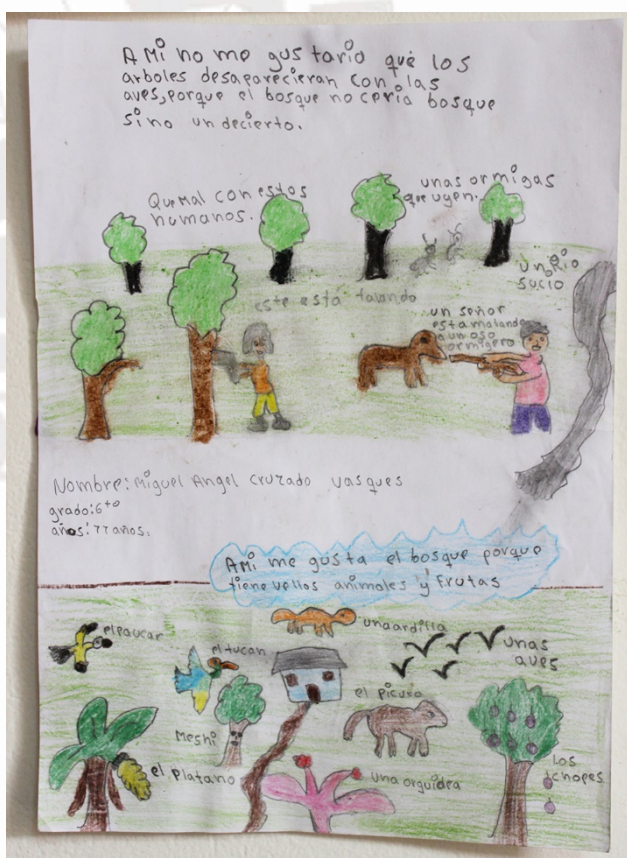 A Mi no me gustario que los
arboles desaparecieran con las
aves, porque el bosque no ceria bosque
sino un decierto.
Que mal con estos
humanos.
unas ormigas
que uyen.
un Rio
sucio
este está talando
un señor
esta matando
a un oso
ormigero
Nombre: Miguel Angel cruzado vasques
grado: 6to
años: 11 años.
A Mi me gusta el bosque porque
tiene vellos animales y frutas
el paucar
una ardilla
unas
aves
el tucan
el picuro
Meshi
el platano
una orguidea
Los